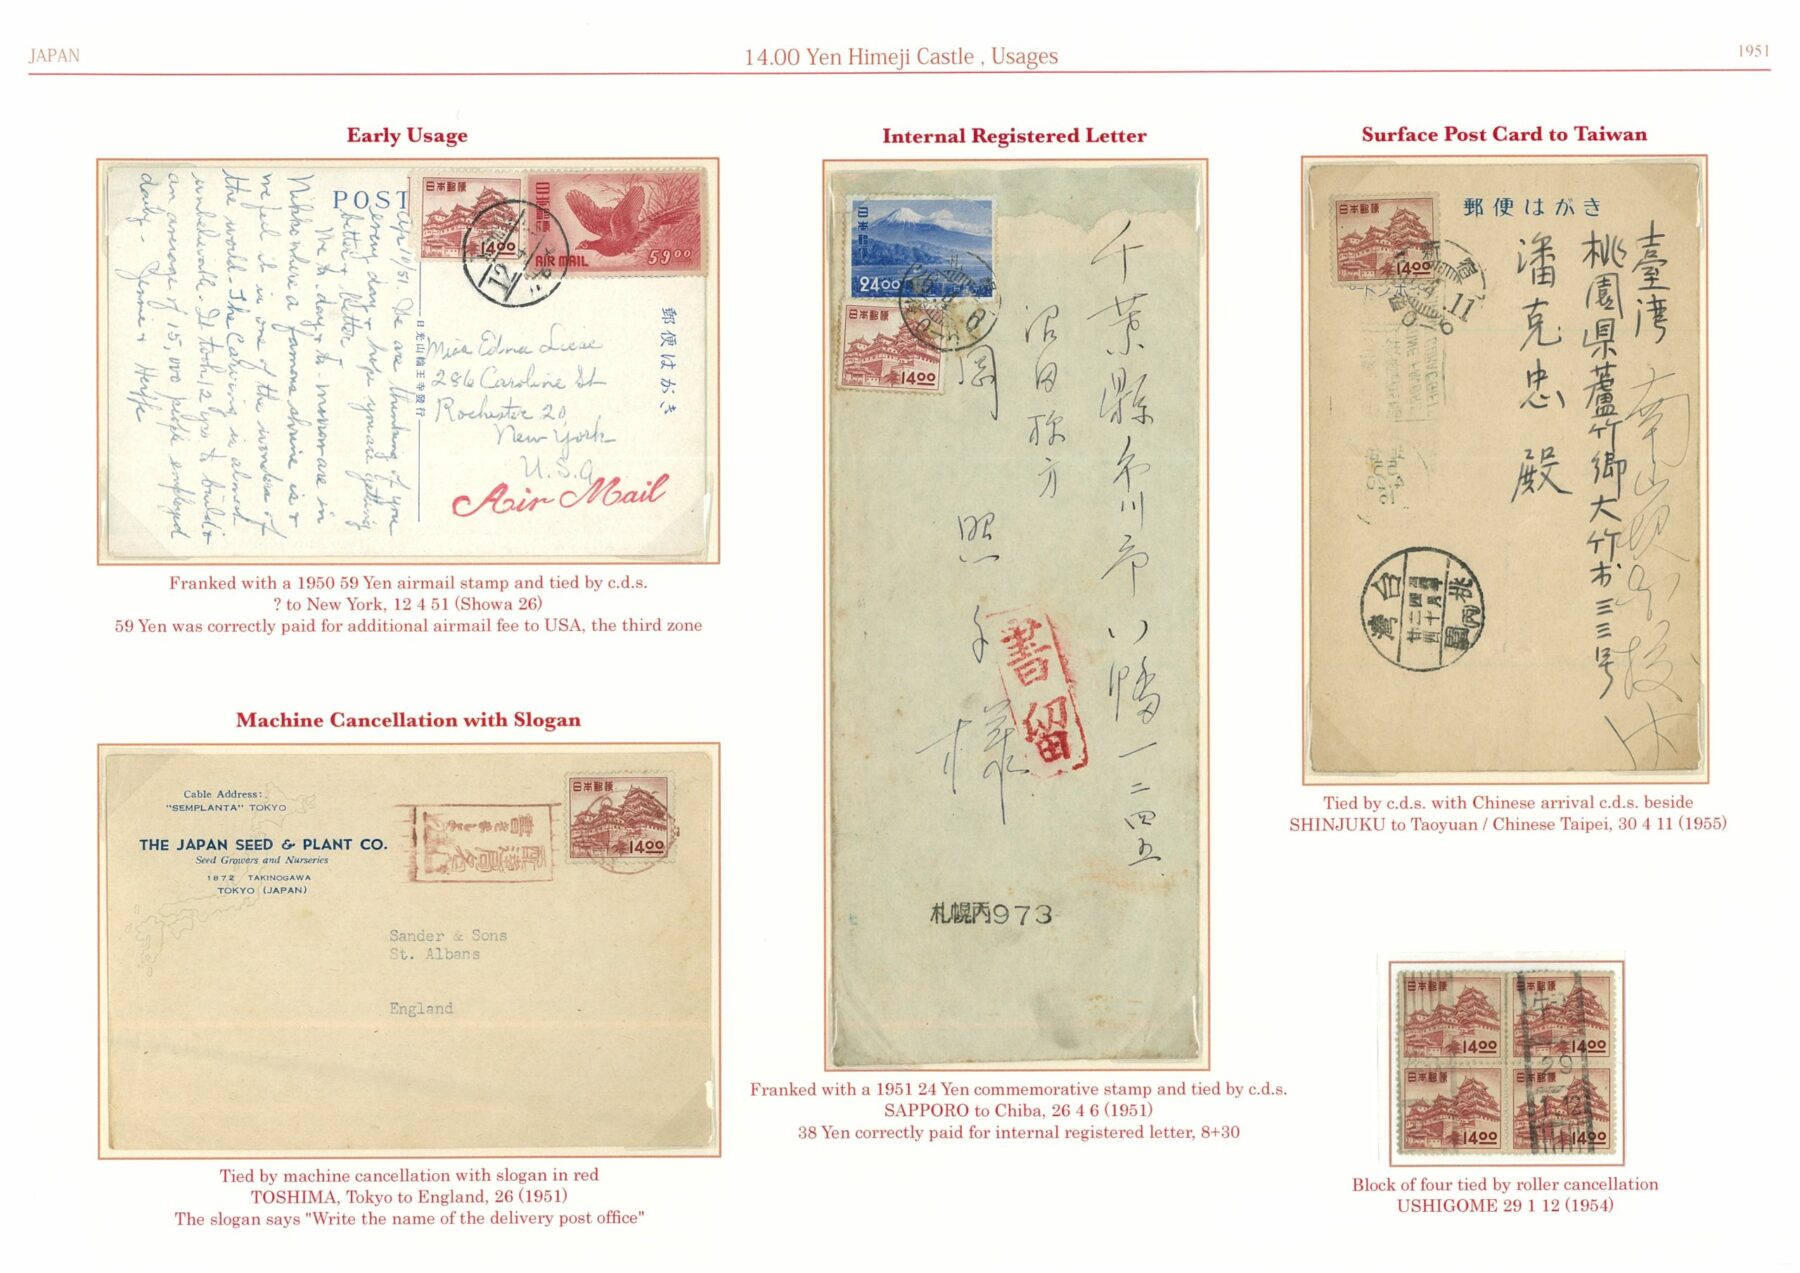 JAPAN
14.00 Yen Himeji Castle , Usages
1951
Early Usage
POST
日本郵便
14.00
日本郵便
AIR MAIL
59.00
Apr/10/51. We are thinking of you
every day & hope you are getting
better & better.
We to-day & to-morrow are in
Nikko where a famous shrine is &
we feel it is one of the wonders of
the world. The Carving is almost
unbelievable. It took 12 yrs to build &
an average of 15,000 people employed
daily -
郵便はがき
日光山輪王寺發行
Miss Edna
286 Caroline St
Rochester 20,
New York
U.S.A
Air Mail
Franked with a 1950 59 Yen airmail stamp and tied by c.d.s.
? to New York, 12 4 51 (Showa 26)
59 Yen was correctly paid for additional airmail fee to USA, the third zone
Machine Cancellation with Slogan
Cable Address:
"SEMPLANTA" TOKYO
THE JAPAN SEED & PLANT CO.
Seed Growers and Nurseries
1872 TAKINOGAWA
TOKYO (JAPAN)
日本郵便
14.00
Sander & Sons
St. Albans
England
Tied by machine cancellation with slogan in red
TOSHIMA, Tokyo to England, 26 (1951)
The slogan says "Write the name of the delivery post office"
Internal Registered Letter
日本郵便
24.00
日本郵便
14.00
千葉縣市川市八幡一二四五
沼田様方
岡 照子様
書留
札幌丙973
Franked with a 1951 24 Yen commemorative stamp and tied by c.d.s.
SAPPORO to Chiba, 26 4 6 (1951)
38 Yen correctly paid for internal registered letter, 8+30
Surface Post Card to Taiwan
日本郵便
14.00
郵便はがき
新宿
臺灣
桃園県蘆竹郷大竹村三三号
潘克忠殿
台灣
桃園
Tied by c.d.s. with Chinese arrival c.d.s. beside
SHINJUKU to Taoyuan / Chinese Taipei, 30 4 11 (1955)
日本郵便
14.00
日本郵便
14.00
日本郵便
14.00
日本郵便
14.00
29
1.12
Block of four tied by roller cancellation
USHIGOME 29 1 12 (1954)